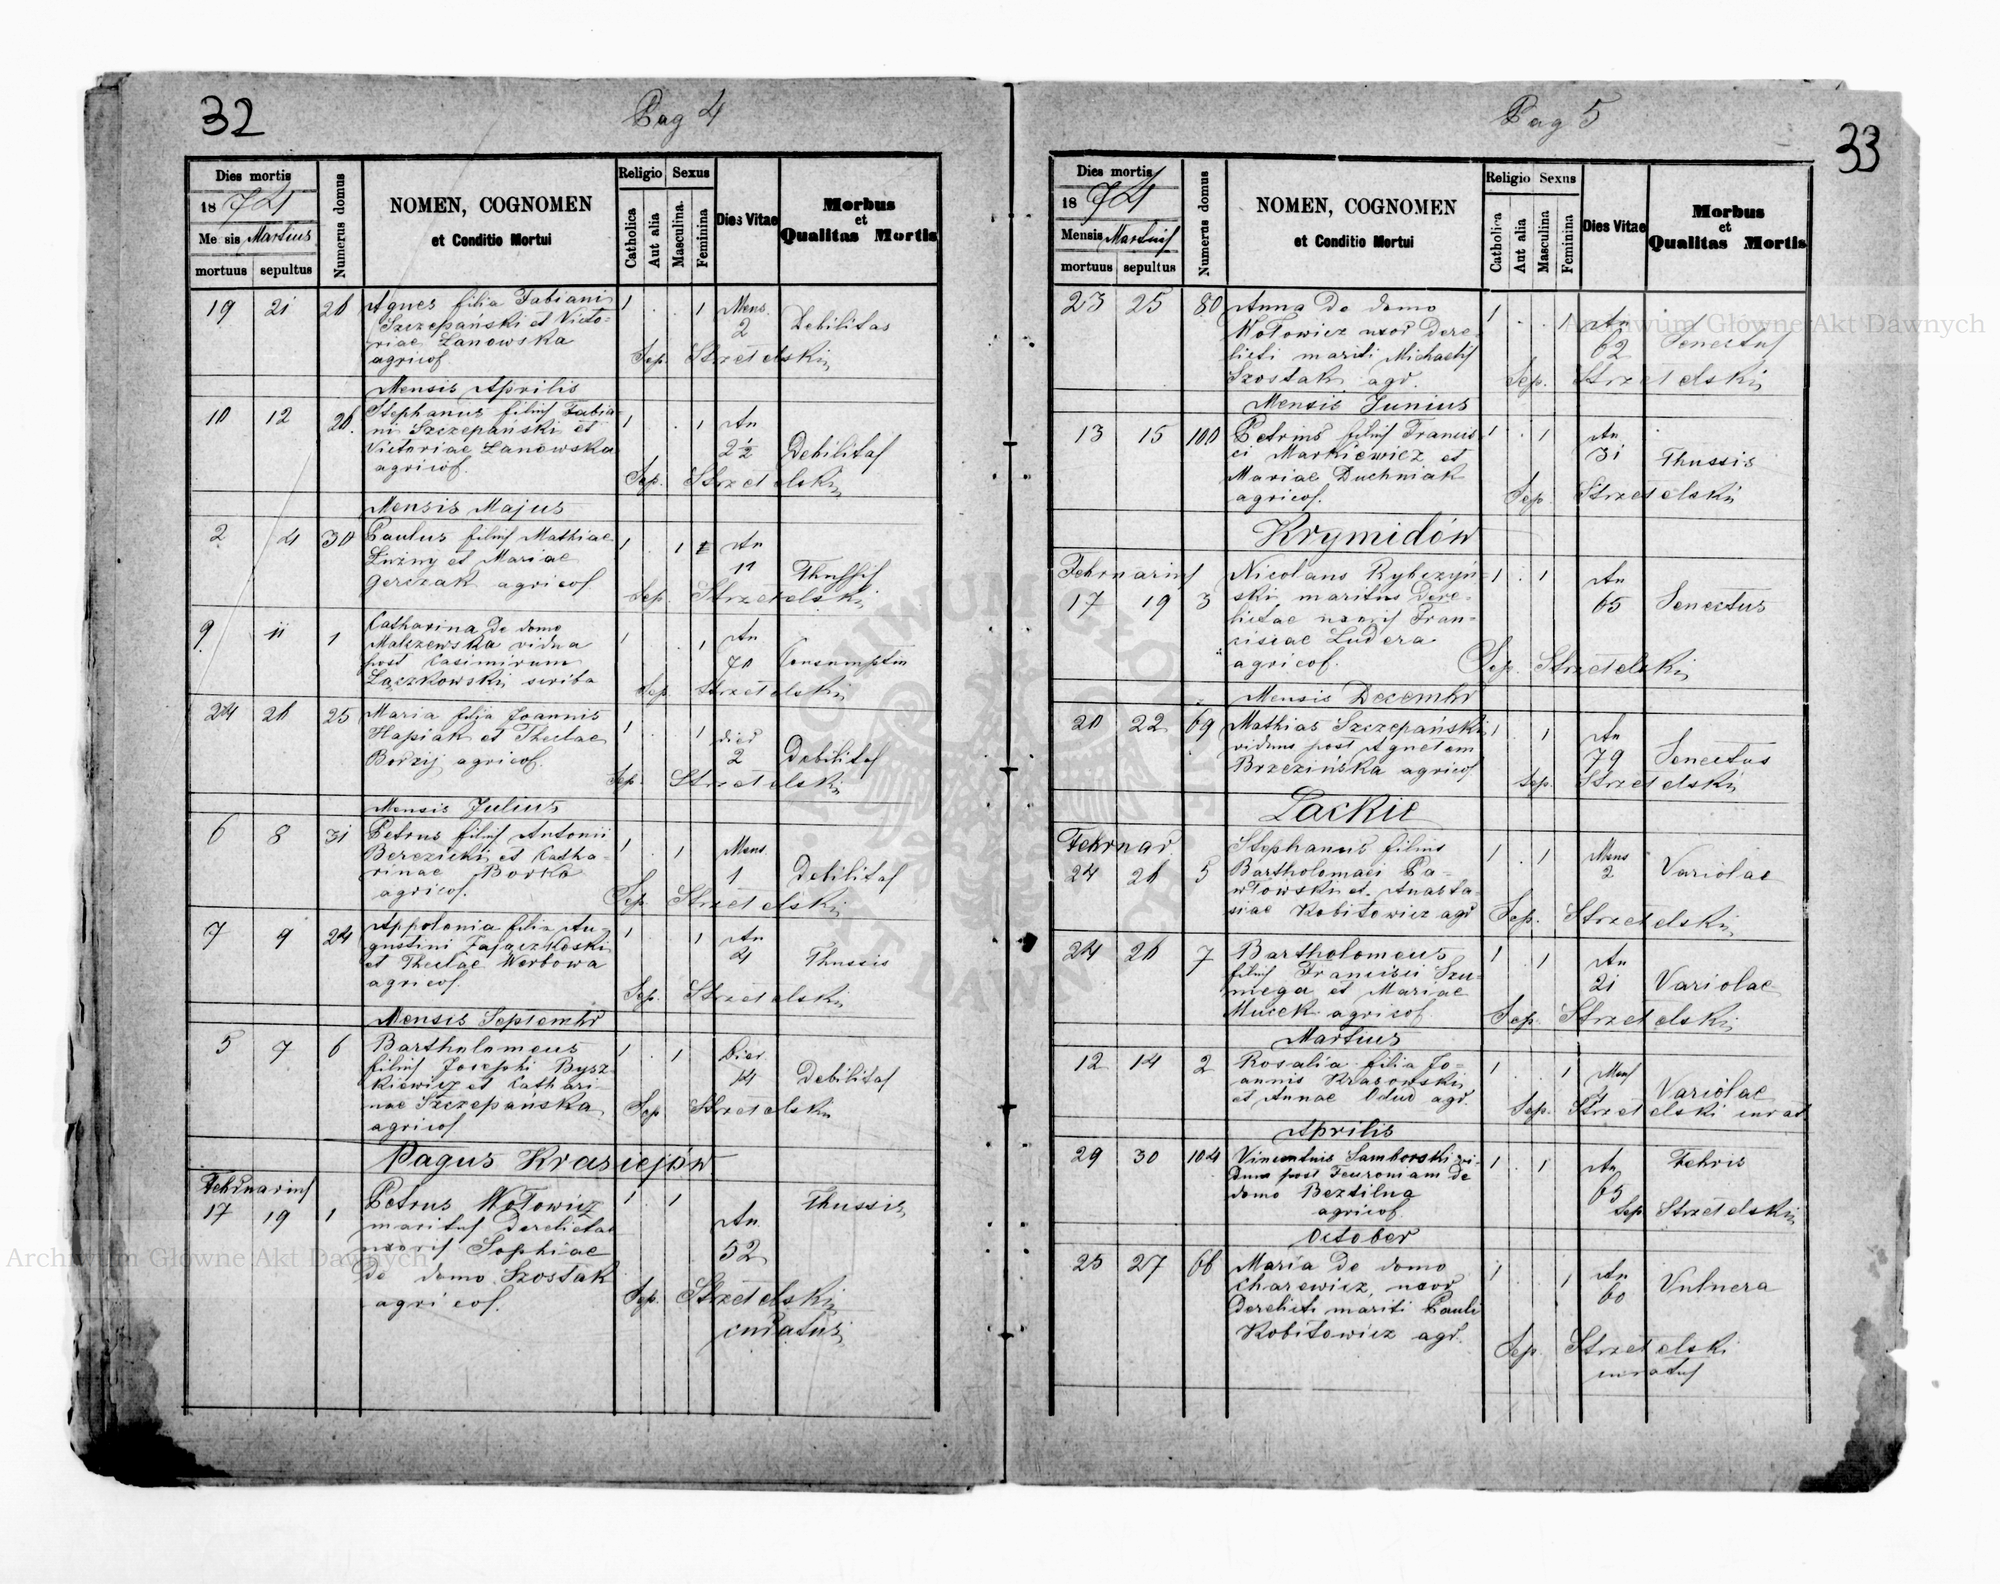 32
Pag 4
Dies mortis
1874
Mensis Martius
mortuus sepultus
Numerus domus
NOMEN, COGNOMEN
et Conditio Mortui
Religio Sexus
Catholica
Aut alia
Masculina
Feminina
Dies Vitae
Morbus
et
Qualitas Mortis
19 21 26 Agnes filia Fabiani 1 . . 1 Mens.
Szczepański et Victo- 2 Debilitas
riae Łanowska
agricol. Sep. Strzetelski
Mensis Aprilis
10 12 26. Stephanus filius Fabia- 1 . 1 An
ni Szczepański et 2½ Debilitas
Victoriae Łanowska
agricol. Sep. Strzetelski
Mensis Majus
2 4 30 Paulus filius Mathiae 1 . 1 An
et Mariae 11 Thussis
Gerczak agricol. Sep. Strzetelski
9 11 1 Catharina de domo 1 . . 1 An
Malczewska vidua 70
post Casimirum
Łączkowski scriba Sep. Strzetelski
24 26 25 Maria filia Joannis 1 . . 1 dies
Hapiak et Theclae 2 Debilitas
agricol. Sep. Strzetelski
Mensis Julius
6 8 31 Petrus filius Antonii 1 . 1 Mens.
Berezicki et Catha- 1 Debilitas
rinae Borka
agricol. Sep. Strzetelski
7 9 24 Appolonia filia Au- 1 . . 1 An
gustini Zajączkoski 4 Thussis
et Theclae Werbowa
agricol. Sep. Strzetelski
Mensis Septembr
5 7 6 Bartholomeus 1 . 1 Dies
filius Josephi Bysz- 14 Debilitas
kiewicz et Cathari-
nae Szczepańska Sep. Strzetelski
agricol
Pagus Krasiejów
Februarius
17 19 1 Petrus Wołowicz 1 1 Thussis
maritus derelictae An
uxoris Sophiae 52
de domo Szostak
agricol. Sep. Strzetelski
curatus
Pag 5
33
Dies mortis
1874
Mensis Martius
mortuus sepultus
Numerus domus
NOMEN, COGNOMEN
et Conditio Mortui
Religio Sexus
Catholica
Aut alia
Masculina
Feminina
Dies Vitae
Morbus
et
Qualitas Mortis
23 25 80 Anna de domo 1 . . 1 An
Wołowicz uxor dere- 62 Senectus
licti mariti Michaelis
Szostak agr. Sep. Strzetelski
Mensis Junius
13 15 100 Petrus filius Francis- 1 . 1 An
ci Markiewicz et 31 Thussis
Mariae Duchniak
agricol. Sep. Strzetelski
Krymidów
Februarius Nicolaus Rybczyń- 1 . 1 An
17 19 3 ski maritus dere- 65 Senectus
lictae uxoris Fran-
cisiae Ludera
agricol. Sep. Strzetelski
Mensis Decembr
20 22 69 Mathias Szczepański 1 . 1 An
viduus post Agnetem 79 Senectus
Brzezińska agricol Sep. Strzetelski
Łackie
Februar. Stephanus filius 1 . 1 Mens
24 26 5 Bartholomaei Pa- 2 Variolae
włowski et Anasta-
siae Kobitowicz agr Sep. Strzetelski
24 26 7 Bartholomeus 1 . 1 An
filius Francisci Szu- 21 Variolae
mega et Mariae
Mucek agricol Sep. Strzetelski
Martius
12 14 2 Rosalia filia Jo- 1 . . 1 Mens
annis Krasowski Variolae
et Annae Odud agr. Sep. Strzetelski curat
Aprilis
29 30 104 Vincentius Samborski vi- 1 . 1 An Febris
duus post Feuroniam de 65
domo Beztilna Sep Strzetelski
agricol
October
25 27 66 Maria de domo 1 . . 1 An
Charewicz, uxor 60 Vulnera
derelicti mariti Pauli
Kobitowicz agr. Sep. Strzetelski
curatus
Archiwum Główne Akt Dawnych
Archiwum Główne Akt Dawnych
ARCHIWUM GŁÓWNE AKT DAWNYCH